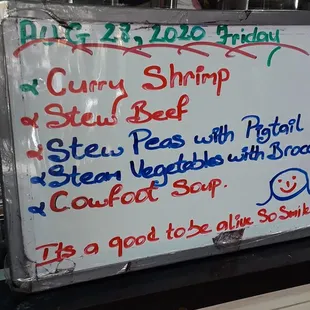 AUG 28, 2020 Friday
Curry Shrimp
Stew Beef
Stew Peas with Pigtail
Steam Vegetables with Brocc
Cowfoot Soup.
Its a good to be alive So Smile